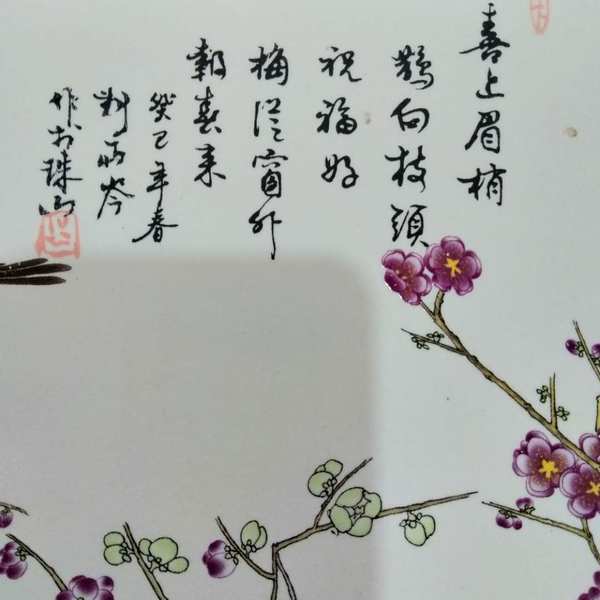 喜上眉梢
鵲向枝頭
祝福好
梅從窗外
報春来
癸巳年春
刘雨岑
作於珠山